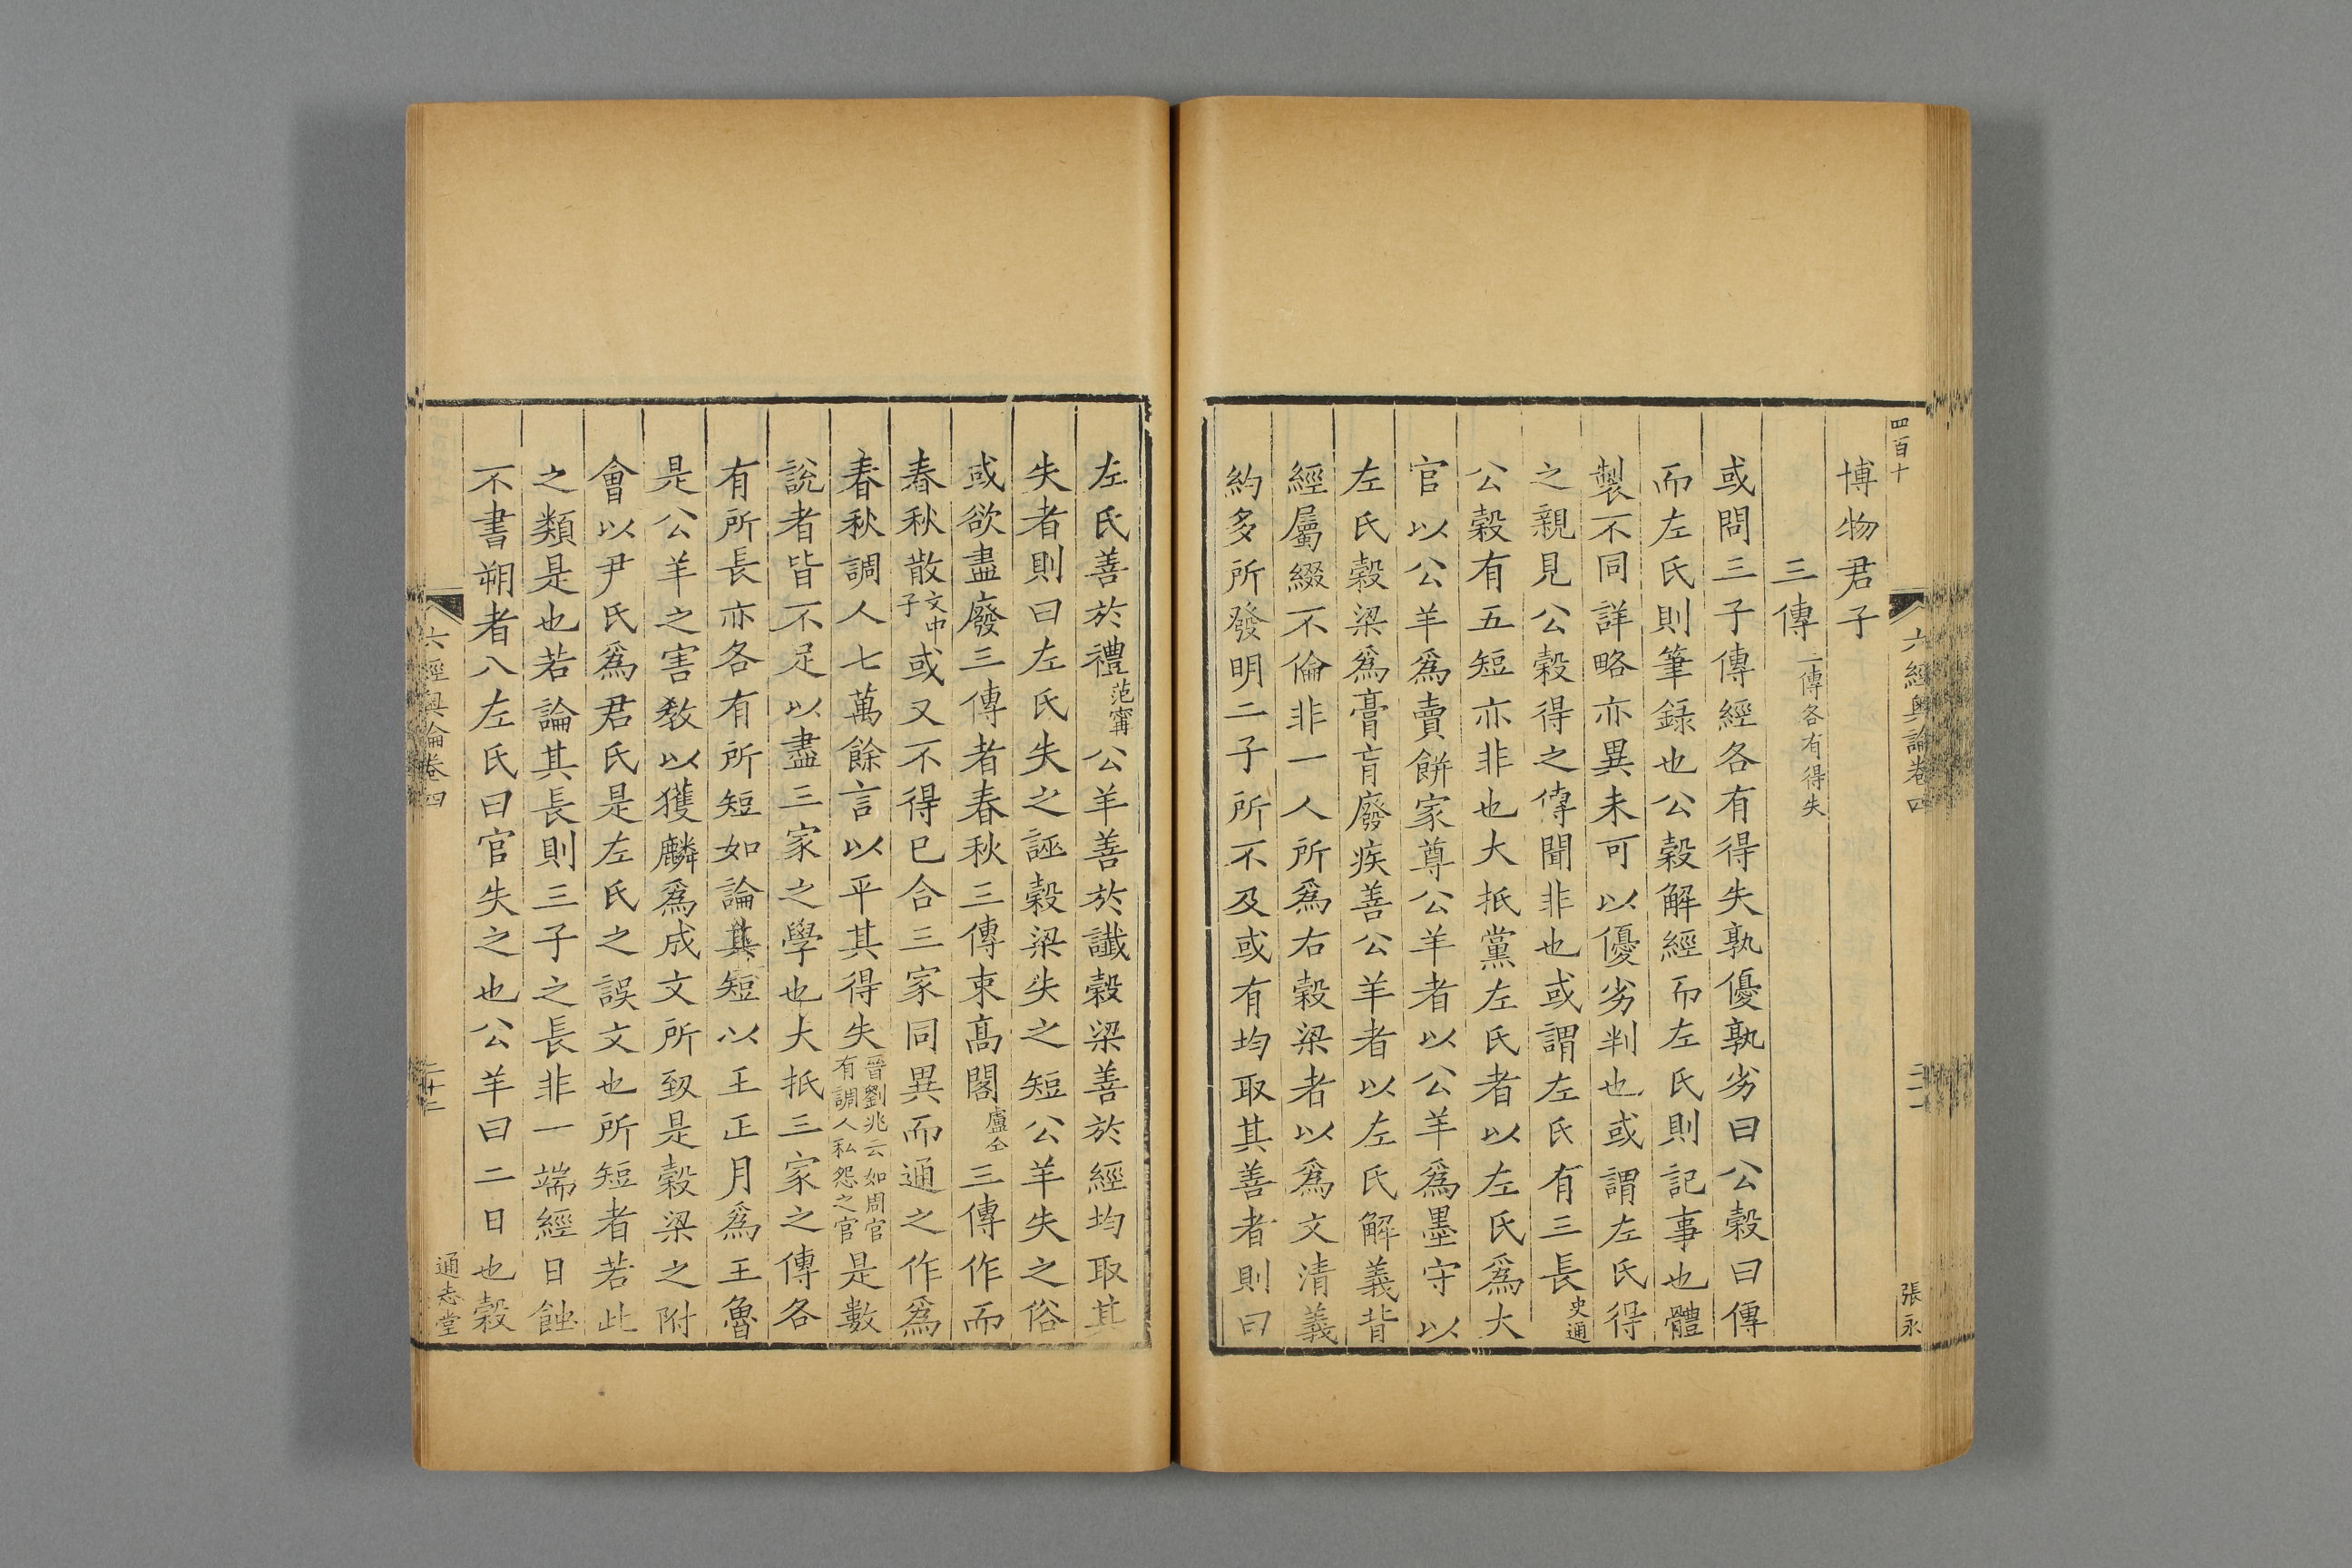 四百十
六經奧論卷四
二十一
張永
博物君子
三傳 三傳各有得失
或問三子傳經各有得失孰優孰劣曰公穀曰傳
而左氏則筆錄也公穀解經而左氏則記事也體
製不同詳略亦異未可以優劣判也或謂左氏得
之親見公穀得之傳聞非也或謂左氏有三長史通
公穀有五短亦非也大抵黨左氏者以左氏爲大
官以公羊爲賣餅家尊公羊者以公羊爲墨守以
左氏穀梁爲膏肓廢疾善公羊者以左氏解義背
經屬綴不倫非一人所爲右穀梁者以爲文清義
約多所發明二子所不及或有均取其善者則曰
左氏善於禮范甯公羊善於讖穀梁善於經均取其
失者則曰左氏失之誣穀梁失之短公羊失之俗
或欲盡廢三傳者春秋三傳束高閣盧仝三傳作而
春秋散文中子或又不得已合三家同異而通之作爲
春秋調人七萬餘言以平其得失晉劉兆云如周官有調人私怨之官是數
說者皆不足以盡三家之學也大抵三家之傳各
有所長亦各有所短如論其短以王正月爲王魯
是公羊之害教以獲麟爲成文所致是穀梁之附
會以尹氏爲君氏是左氏之誤文也所短者若此
之類是也若論其長則三子之長非一端經日蝕
不書朔者八左氏曰官失之也公羊曰二日也穀
六經奧論卷四
二十二
通志堂